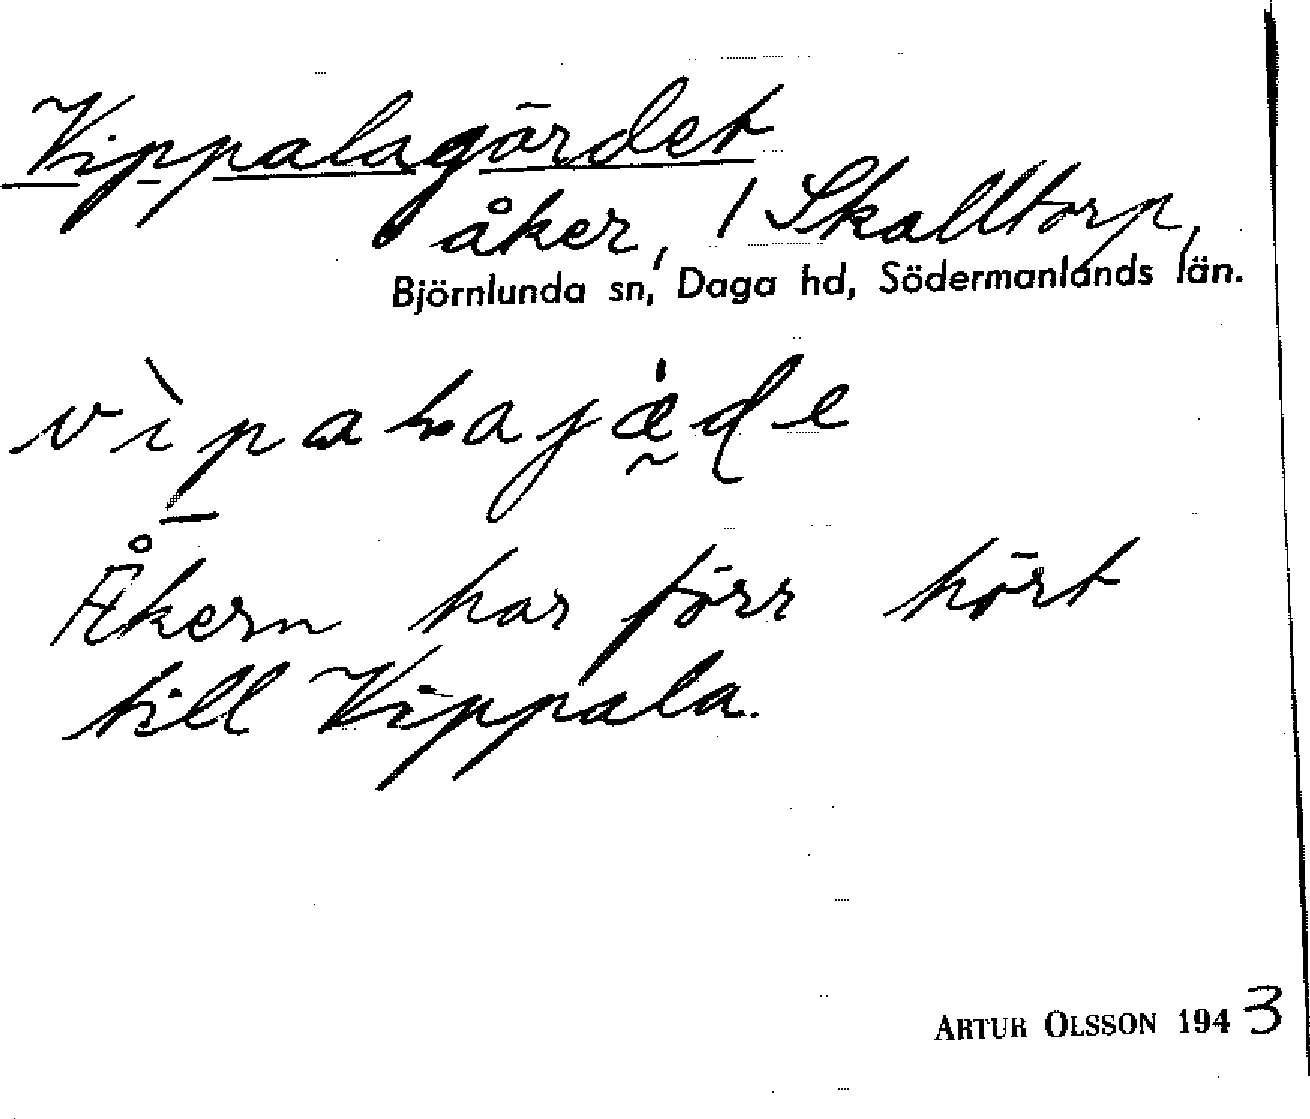 Vippalagärdet
åker, / Skalltorp,
Björnlunda sn, Daga hd, Södermanlands län.
Åkern har förr hört
till Vippala.
ARTUR OLSSON 1943